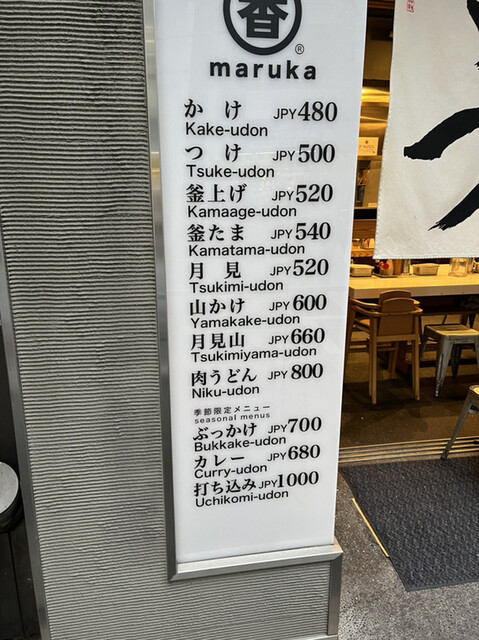 香
®
maruka
かけ JPY480
Kake-udon
つけ JPY500
Tsuke-udon
釜上げ JPY520
Kamaage-udon
釜たま JPY540
Kamatama-udon
月見 JPY520
Tsukimi-udon
山かけ JPY600
Yamakake-udon
月見山 JPY660
Tsukimiyama-udon
肉うどん JPY800
Niku-udon
季節限定メニュー
seasonal menus
ぶっかけ JPY700
Bukkake-udon
カレー JPY680
Curry-udon
打ち込み JPY1000
Uchikomi-udon